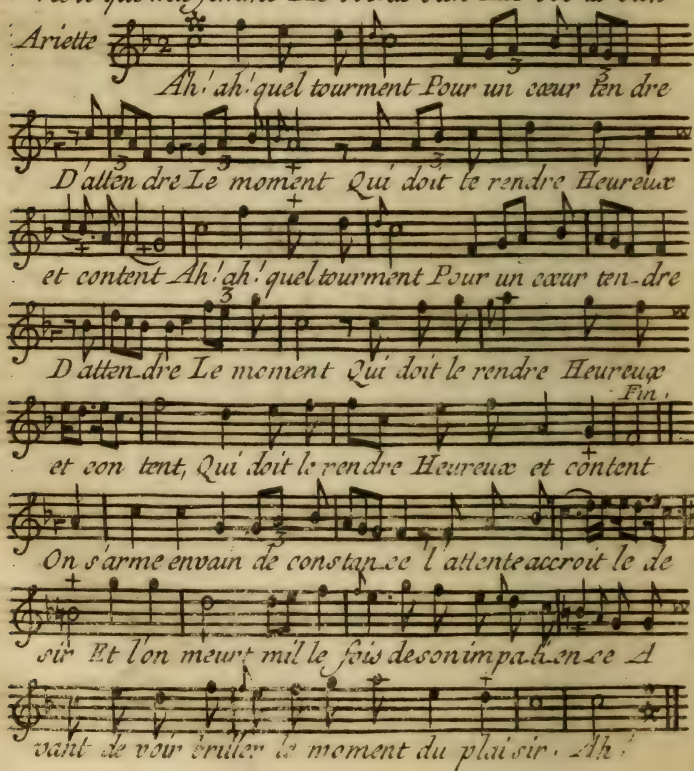 Ariette
Ah! ah! quel tourment Pour un cœur ten dre
D'atten dre Le moment Qui doit le rendre Heureux
et content Ah! ah! quel tourment Pour un cœur ten-dre
D'atten-dre Le moment Qui doit le rendre Heureux
Fin.
et con tent, Qui doit le rendre Heureux et content
On s'arme envain de constan-ce l'attente accroit le de
sir Et l'on meurt mil le fois de son impa-tien-ce A
vant de voir briller le moment du plai sir. Ah!